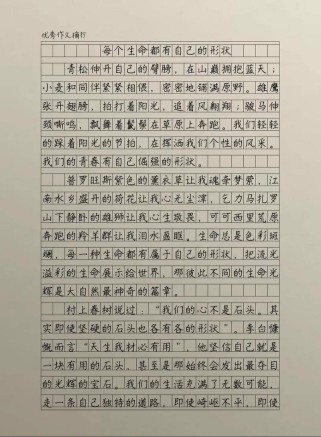 优秀作文摘抄
每个生命都有自己的形状
青松伸开自己的臂膀，在山巅拥抱蓝天；
小麦和同伴紧紧相偎，密密地铺满原野。雄鹰
张开翅膀，拍打着阳光，追着风翱翔；骏马伸
颈嘶鸣，飘舞着鬣鬃在草原上奔跑。我们轻轻
的踩着阳光的节拍，在挥洒我们个性的风采。
我们的青春有自己倔强的形状。
普罗旺斯紫色的薰衣草让我魂牵梦萦，江
南水乡盛开的荷花让我心无尘凛，乞力马扎罗
山下静卧的雄狮让我心生敬畏，可可西里荒原
奔跑的羚羊群让我泪水盈眶。生命总是色彩斑
斓，每一种生命都有属于自己的形状，把流光
溢彩的生命展示给世界，那彼此不同的生命光
辉是大自然最神奇的篇章。
村上春树说过：“我们的心不是石头。其
实即使坚硬的石头也各有各的形状”。李白慷
慨而言“天生我材必有用”，他坚信自己就是
一块有用的石头，甚至是那始终会发出最夺目
的光辉的宝石。我们的生活充满了无数可能，
走一条自己独特的道路，即使崎岖不平，即使